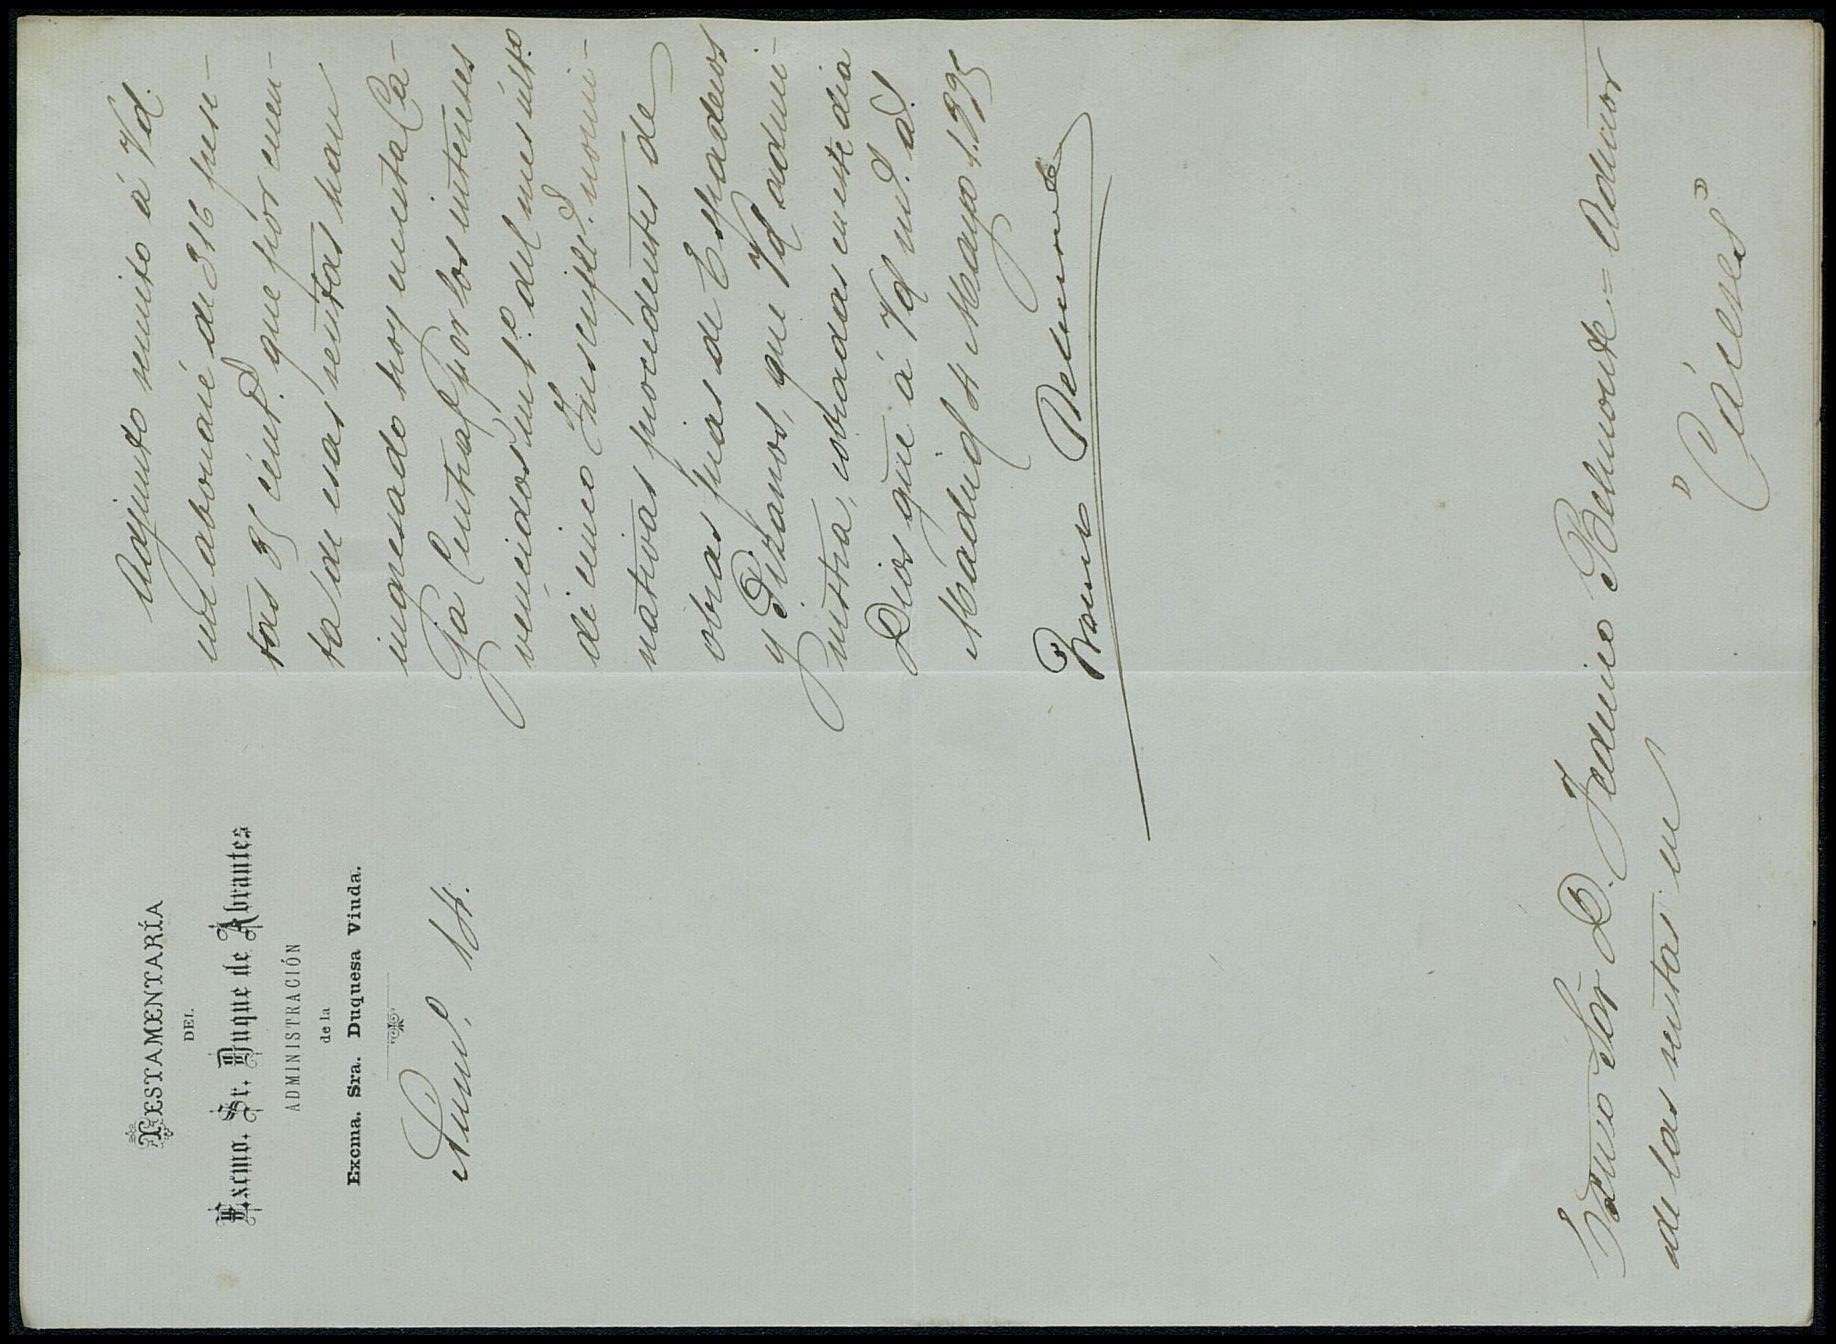 TESTAMENTARÍA
DEL
Excmo. Sr. Duque de Abrantes
ADMINISTRACIÓN
de la
Excma. Sra. Duquesa Viuda.
Num.º 14.
Adjunto remito á Vd.
un abonaré de 316 pese-
tas 35 cént.s que por cuen-
ta de esas rentas han
ingresado hoy en esta Ca-
ja Central por los intereses
vencidos en 1.º del mes últ.º
de cinco Inscripc.s nomi-
nativas procedentes de
obras pias de Espaderos
y Pizarros, que Vd admi-
nistra, cobradas en este dia
Dios gue á Vd m.s a.s
Madrid 4 Mayo 1.895
Ramo Belmonte
Excmo Sor D. Federico Belmonte = Admor
de las rentas en
"Cáceres"